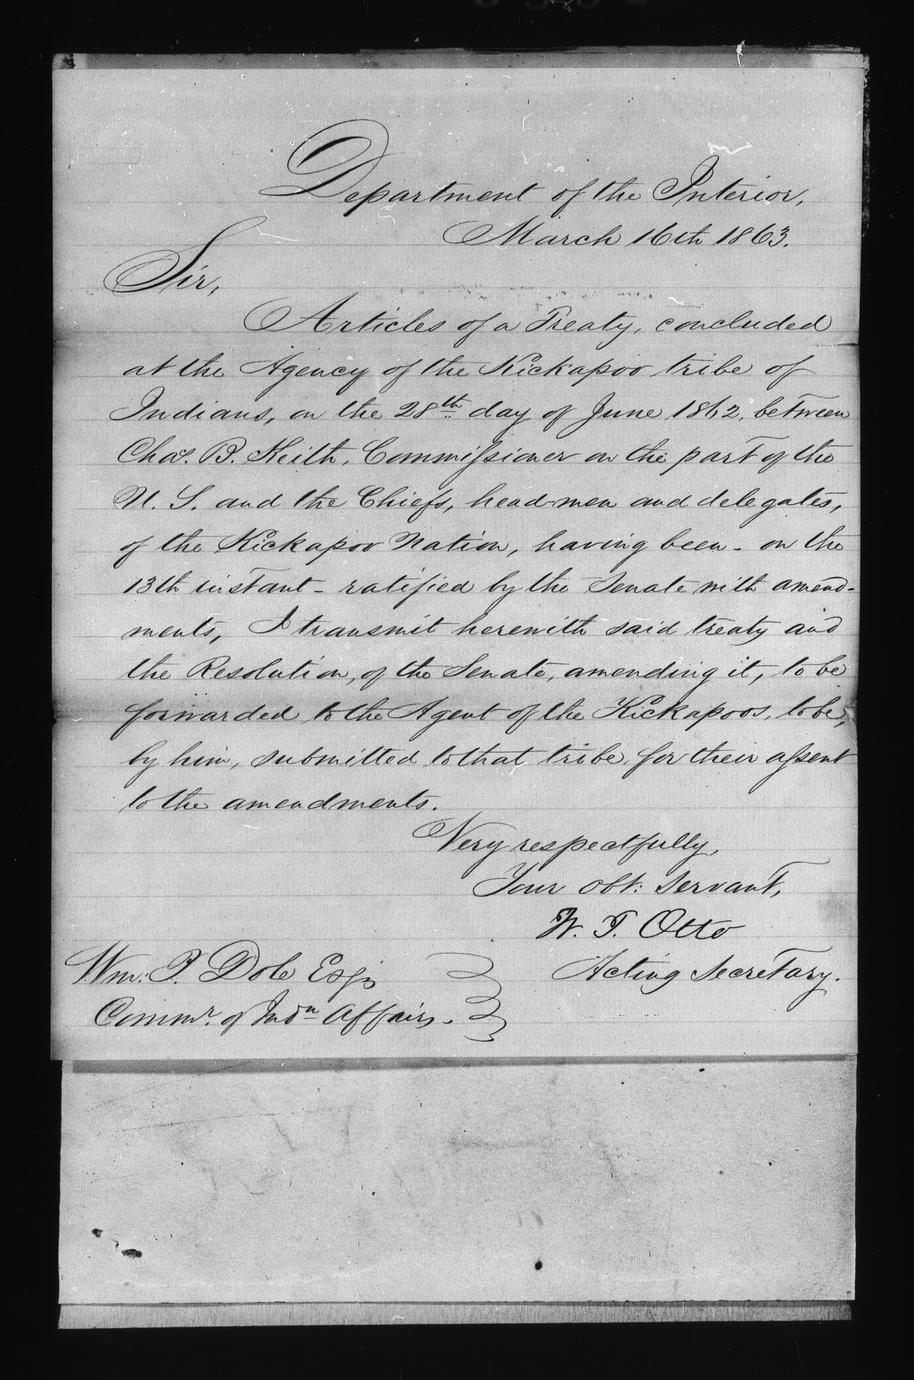 Department of the Interior,
March 16th 1863.
Sir,
Articles of a Treaty, concluded
at the Agency of the Kickapoo tribe of
Indians, on the 28th day of June 1862, between
Chas. B. Keith, Commissioner on the part of the
U. S. and the Chiefs, headmen and delegates,
of the Kickapoo Nation, having been - on the
13th instant - ratified by the Senate with amend-
ments, I transmit herewith said treaty and
the Resolution, of the Senate, amending it, to be
forwarded to the Agent of the Kickapoos, to be,
by him, submitted to that tribe for their assent
to the amendments.
Very respectfully,
Your obt: servant,
W. T. Otto
Acting Secretary.
Wm. P. Dole Esq
Commr. of Indn Affairs.